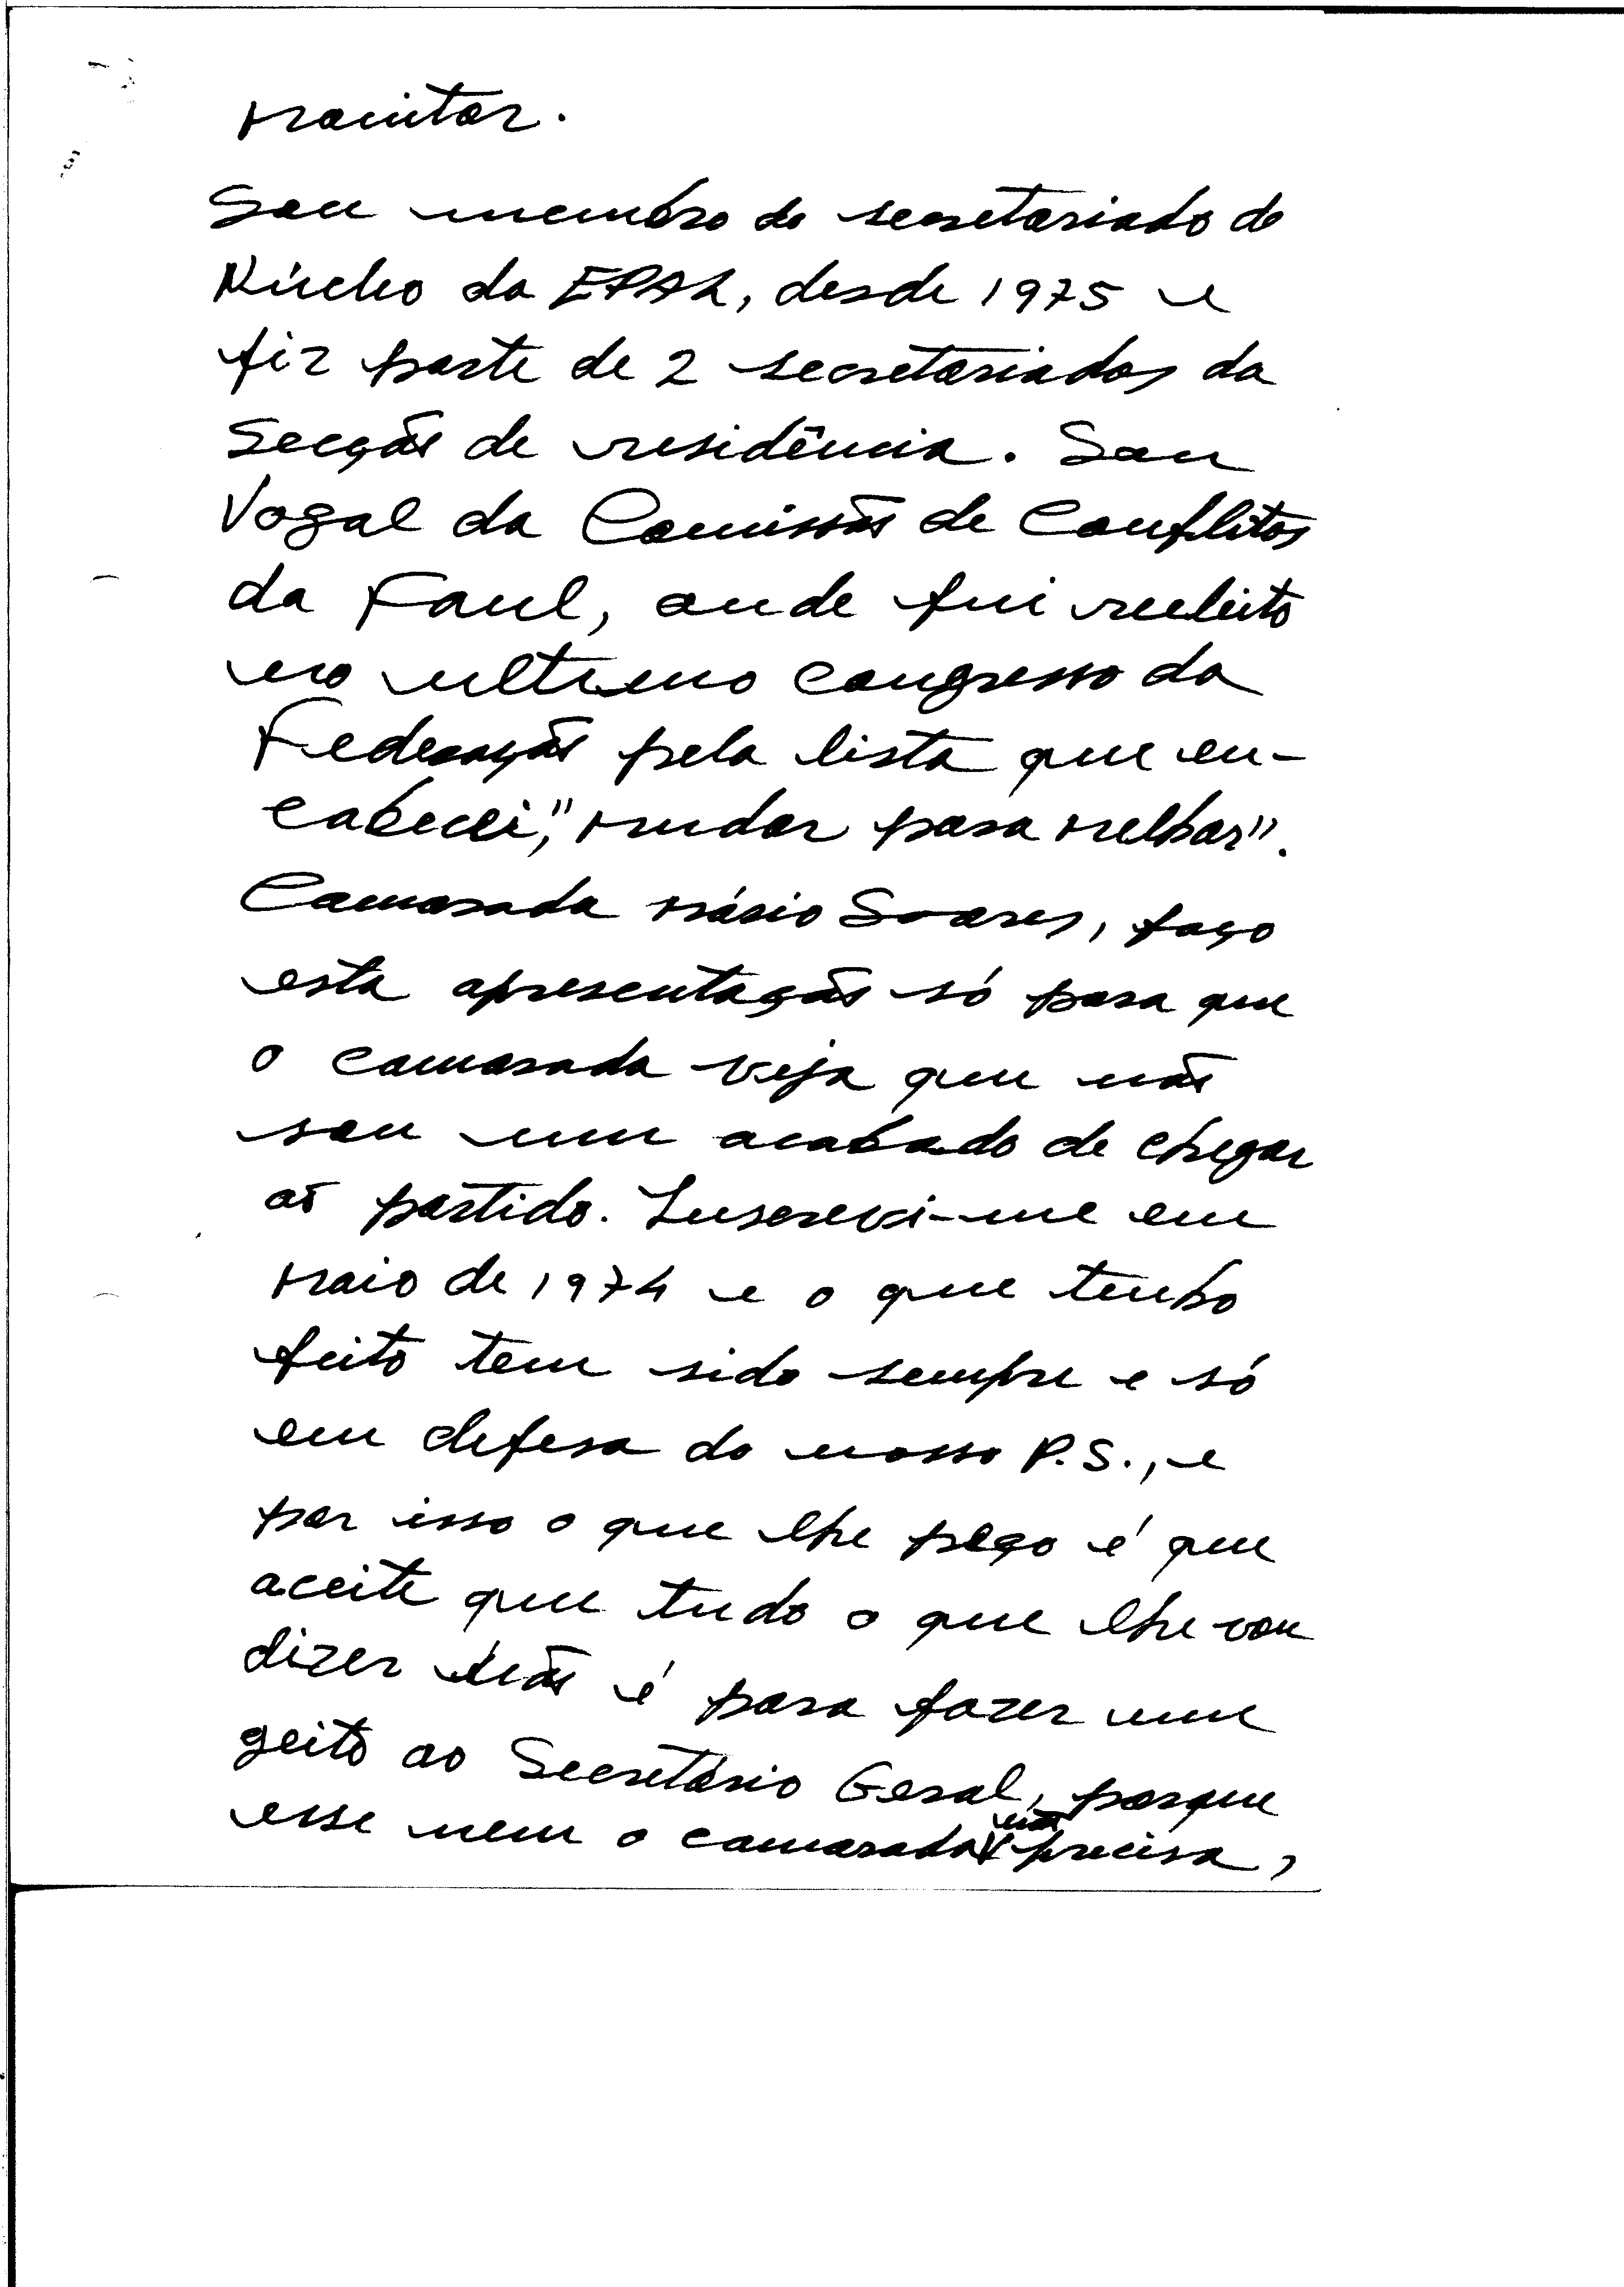 monitor.
Sou membro do secretariado do
Núcleo da EPAL, desde 1975 e
fiz parte de 2 secretariados da
Secção de residência. Sou
Vogal da Comissão de Conflitos
da Faul, onde fui reeleito
no ultimo congresso da
Federação pela lista que en-
cabecei, "mudar para melhor".
Camarada Mário Soares, faço
esta apresentação só para que
o camarada veja que não
sou um acabado de chegar
ao partido. Inscrevi-me em
Maio de 1974 e o que tenho
feito tem sido sempre e só
em defesa do nosso P.S., e
por isso o que lhe peço é que
aceite que tudo o que lhe vou
dizer não é para fazer um
geito ao Secretário Geral, porque
esse nem o camarada não precisa,